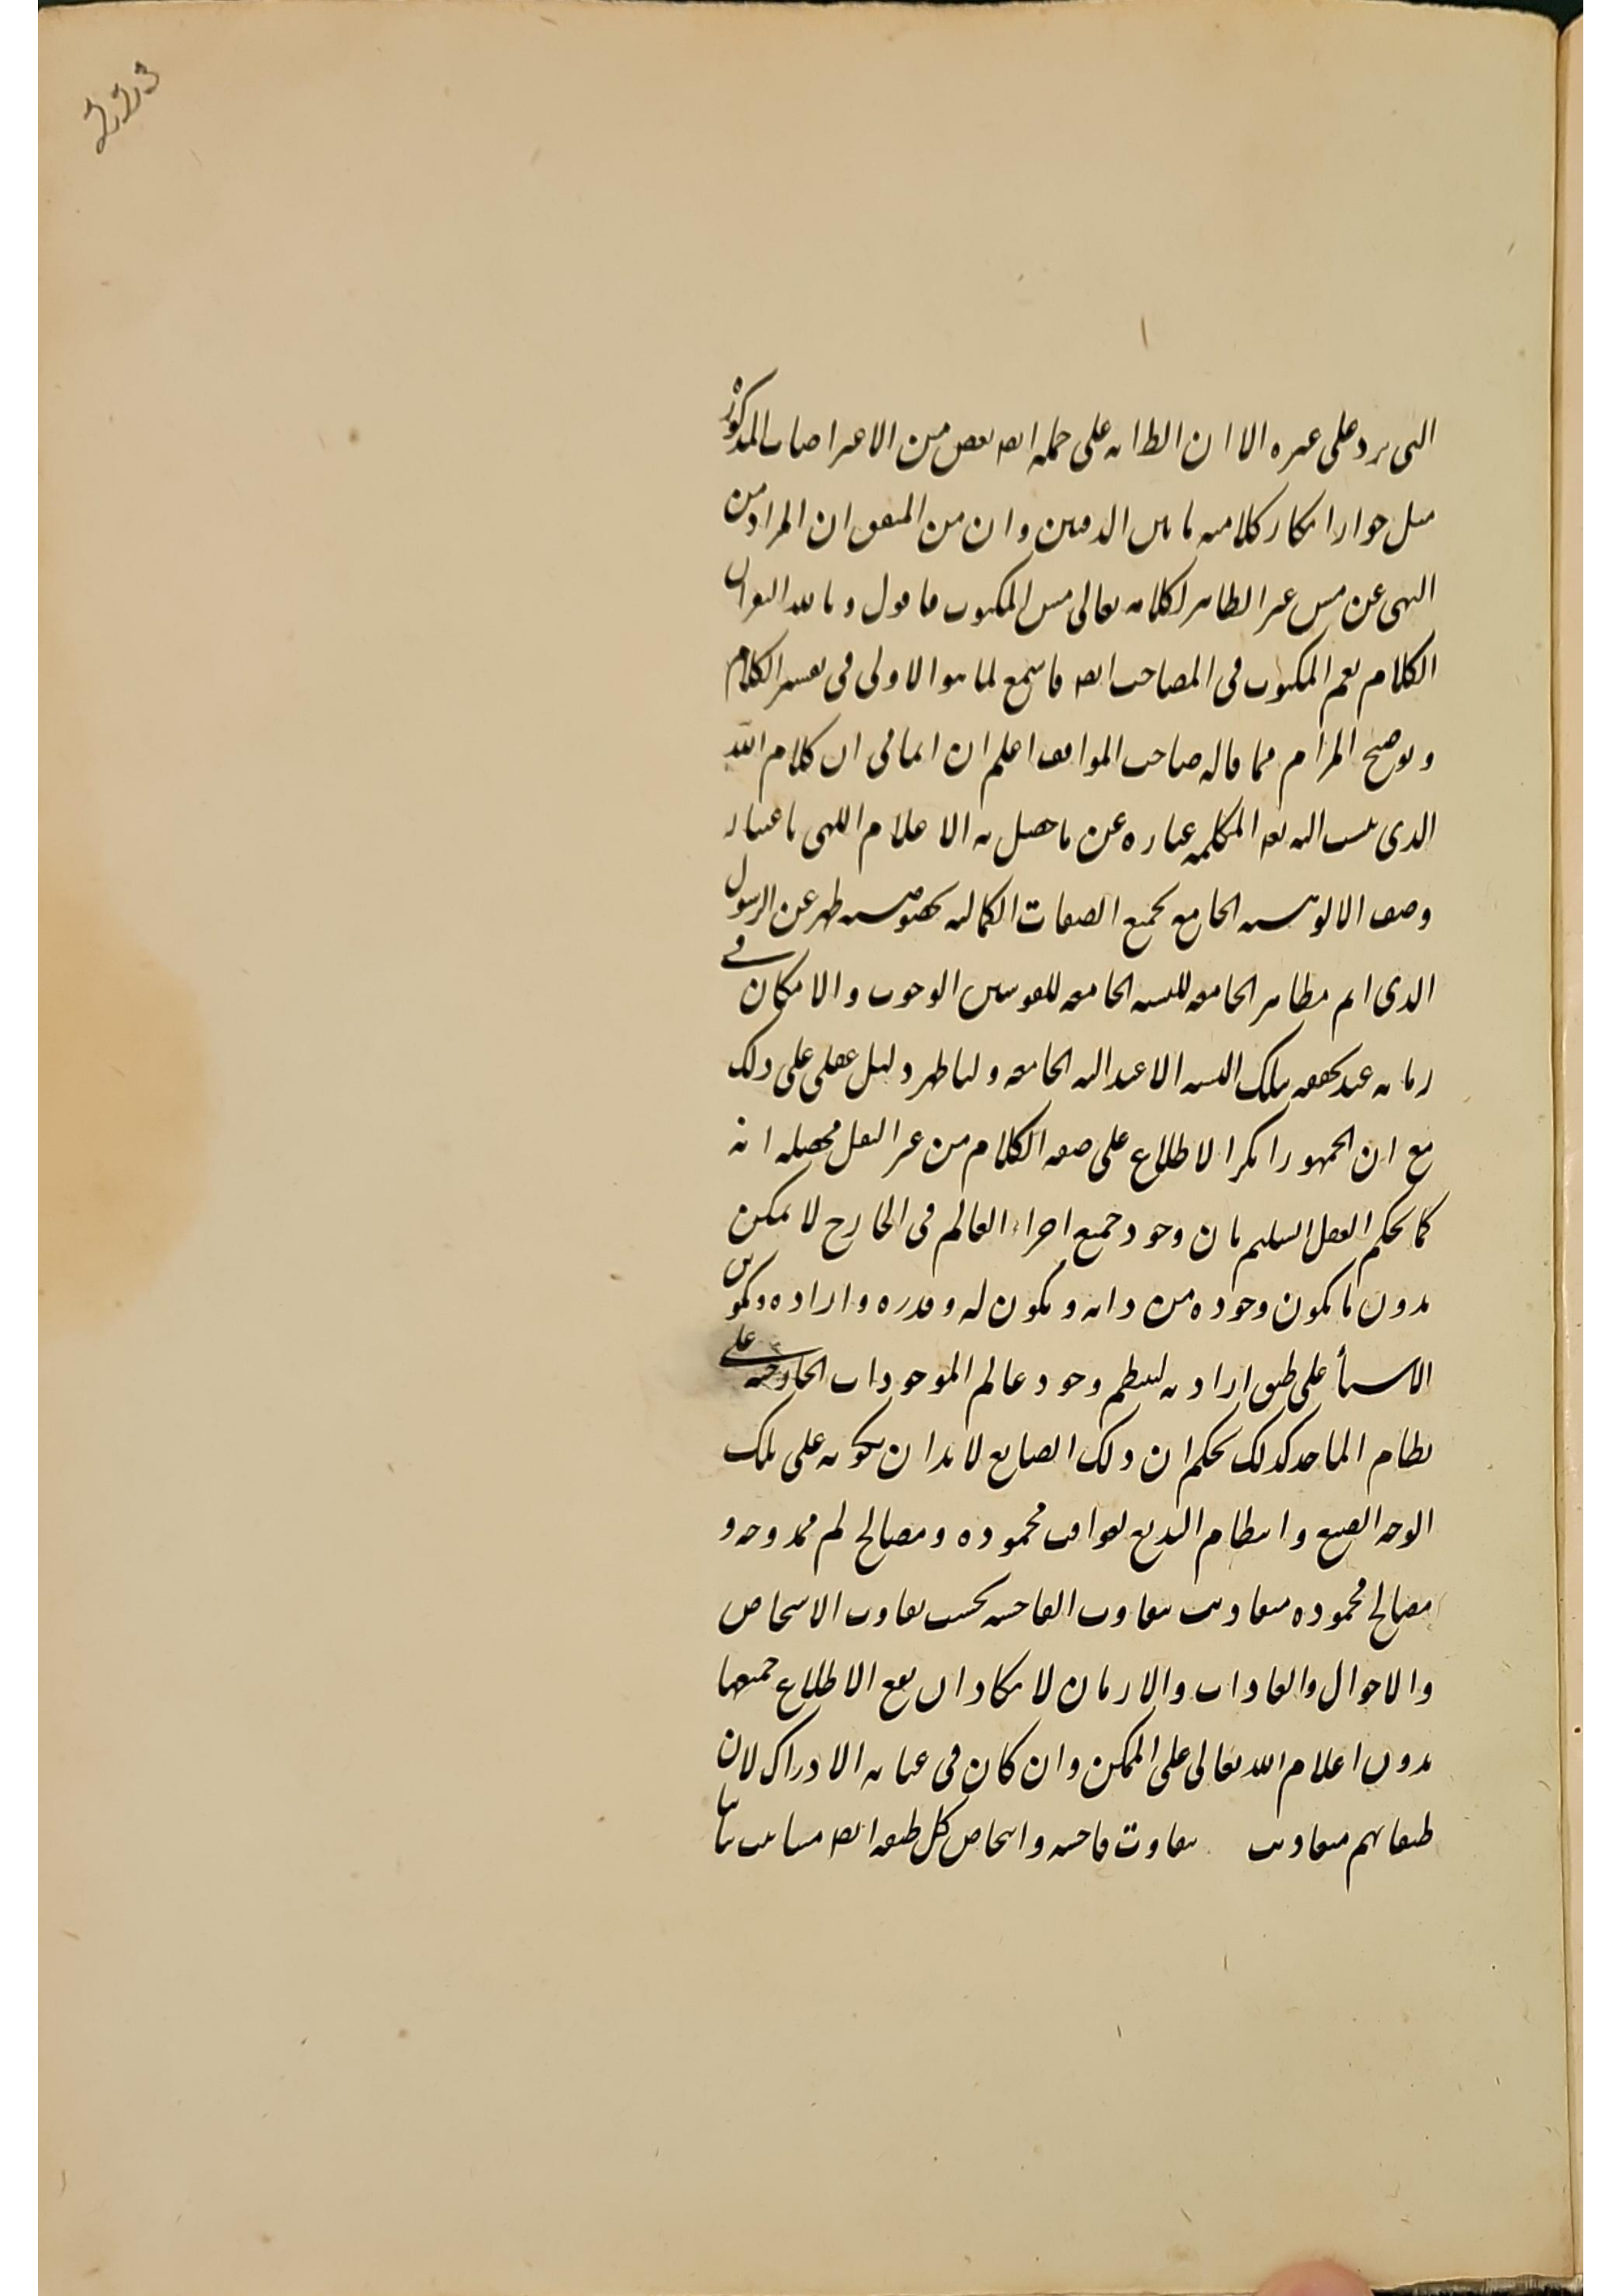 223
التى يرد على غيره الا ان الظانه على حمله ايضا بعض من الاعتراضات المذكورة
مثل جواز انكار كلاميه ما بين الدفتين وان من المتفق ان المراد من
النهى عن مس غير الطاهر لكلامه تعالى مس المكتوب فاقول وبالله
الكلام نعم المكتوب فى المصاحف ايضا فاسمع لما هو الاولى فى تفسير الكلام
وتوضيح المرام مما قاله صاحب المواقف اعلم ان ان كلام الله
الذى ينسب اليه بعد المتكلمية عباره عن ما حصل به الاعلام اللهى باعتبار
وصف الالوهيه الجامع لجميع الصفات الكماليه بخصوصيته ظهر عن الرسول
الذى اتم مظاهر الجامعه للنسبه الجامعه للقوسين الوجوب والامكان فى
زمانه عند تحققه بتلك النسبه الاعتداليه الجامعه ولنا ظهر دليل عقلى على ذلك
مع ان الجمهور انكر الاطلاع على صفه الكلام من غير النقل محصله انه
كما يحكم العقل السليم بان وجود جميع اجزاء العالم فى الخارج لا يمكن
بدون ما يكون وجوده من ذاته ويكون له وقدره واراده وتكوين
الاشيأ على طبق ارادته لينتظم وجود عالم الموجودات الخارجيه على
نظام كذلك يحكم ان ذلك الصانع لا بد ان يكونه على تلك
الوجه الصنيع وانتظام البديع لعواقب محموده ومصالح لم ممدوحه و
مصالح محموده متفاوتت بتفاوت الفاحشه بحسب تفاوت الاشخاص
والاحوال والعادات والازمان لا يكاد ان يقع الاطلاع جميعها
بدون اعلام الله تعالى على الممكن وان كان فى غايه الادراك لان
طبقاتهم متفاوتت بتفاوت فاحشه واشخاص كل طبقه ايضا